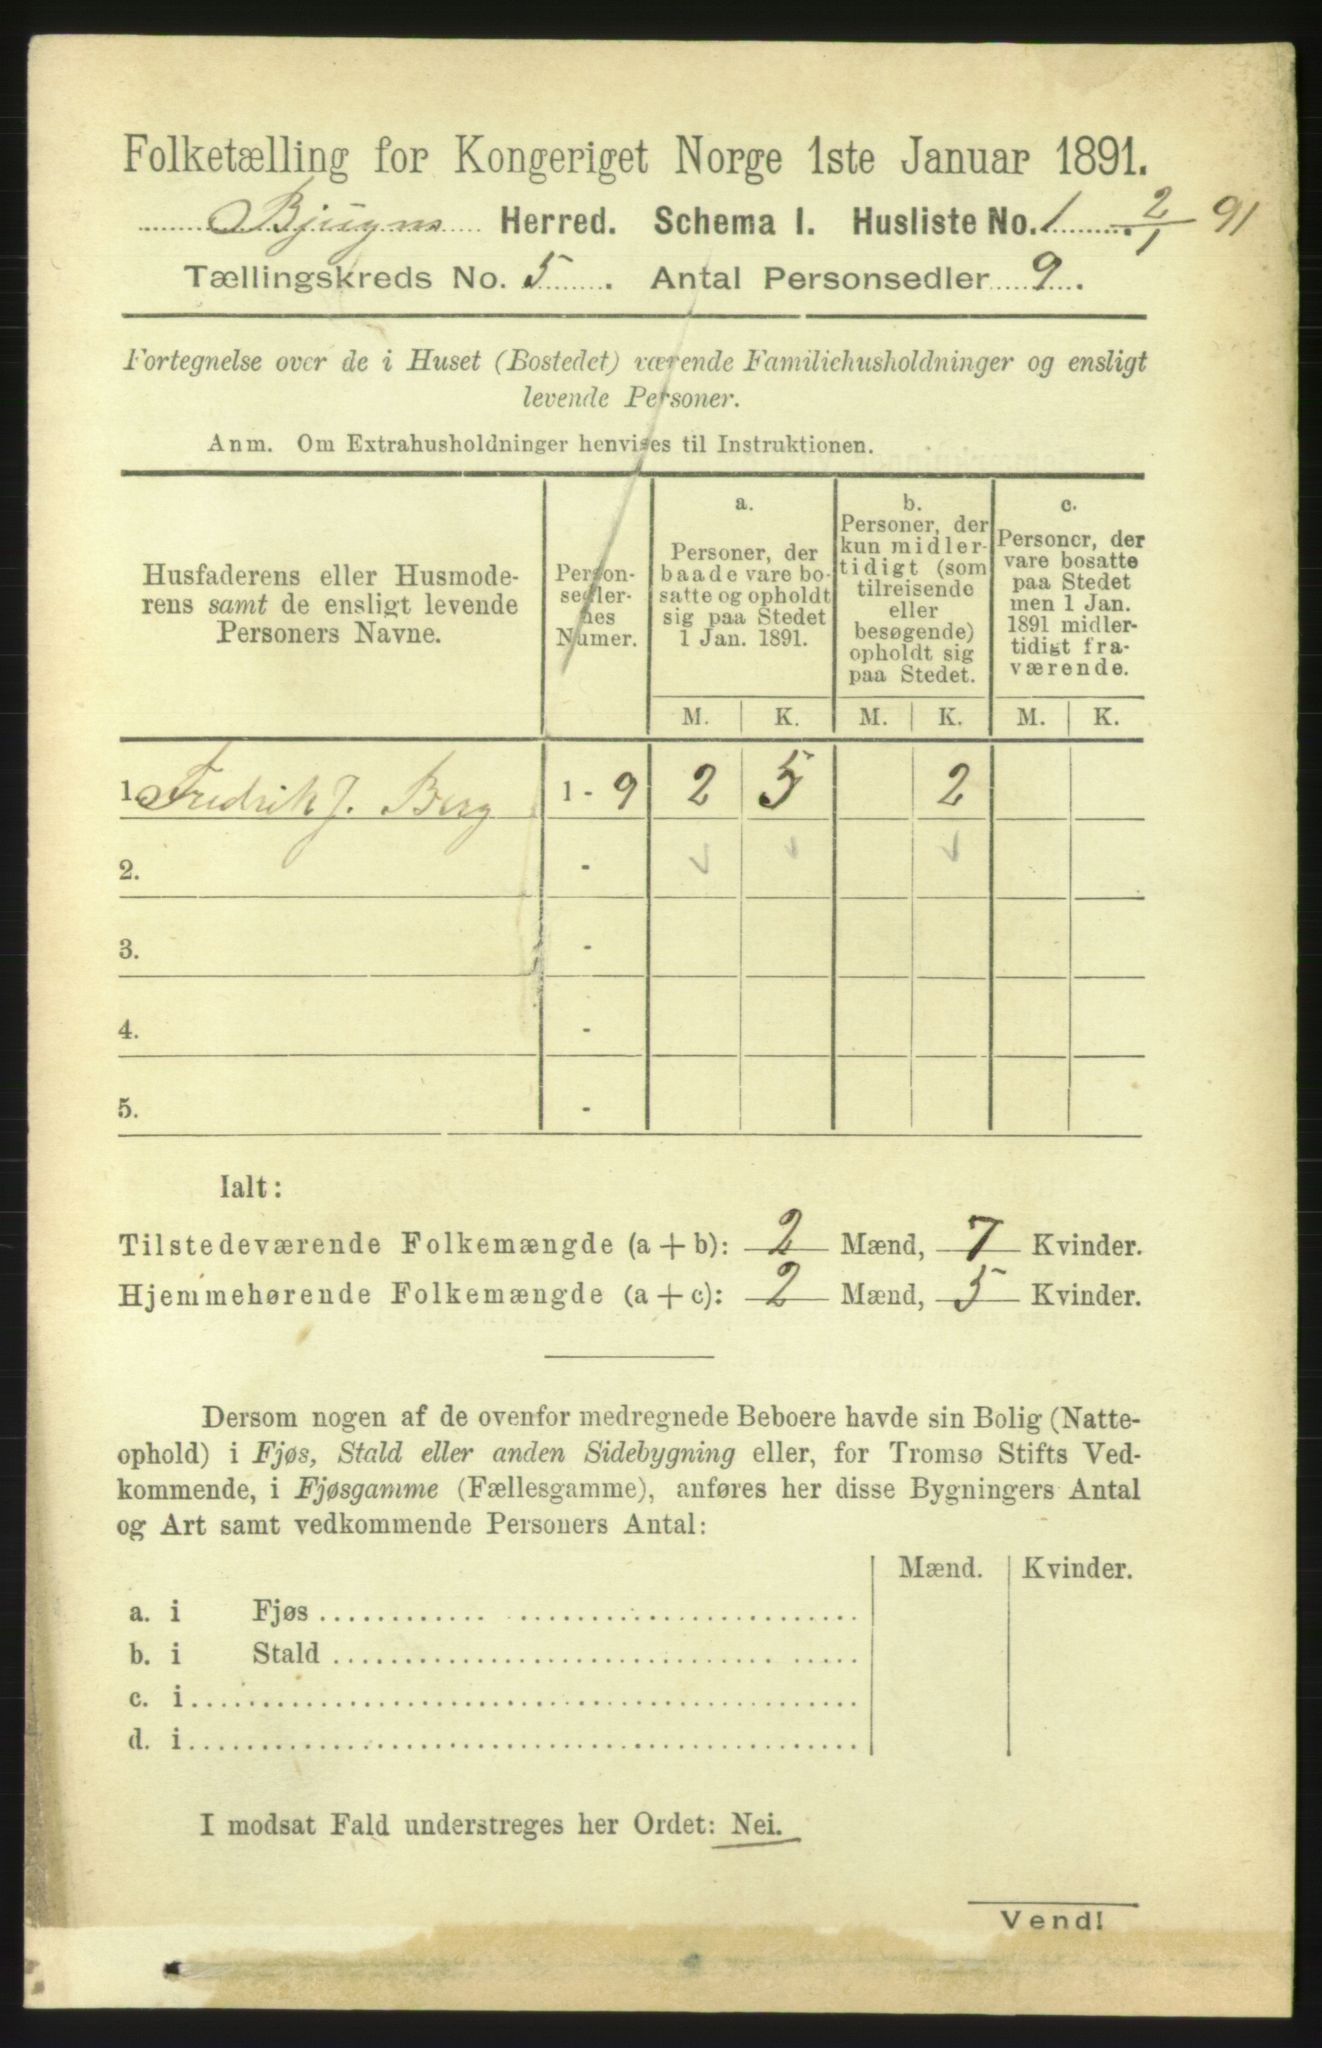 Folketælling for Kongeriget Norge 1ste Januar 1891.
Bjugns Herred. Schema I. Husliste No. 1. 2/1 91
Tællingskreds No. 5. Antal Personsedler 9.
Fortegnelse over de i Huset (Bostedet) værende Familiehusholdninger og ensligt
levende Personer.
Anm. Om Extrahusholdninger henvises til Instruktionen.
Husfaderens eller Husmode-
rens samt de ensligt levende
Personers Navne.
Person-
sedler-
nes
Numer.
a.
Personer, der
baade vare bo-
satte og opholdt
sig paa Stedet
1 Jan. 1891.
b.
Personer, der
kun midler-
tidigt (som
tilreisende
eller
besøgende)
opholdt sig
paa Stedet.
c.
Personer, der
vare bosatte
paa Stedet
men 1 Jan.
1891 midler-
tidigt fra-
værende.
M. K. M. K. M. K.
1. Fredrik J. Berg 1 - 9 2 5 2
2. -
3. -
4. -
5. -
Ialt:
Tilstedeværende Folkemængde (a + b): 2 Mænd, 7 Kvinder.
Hjemmehørende Folkemængde (a + c): 2 Mænd, 5 Kvinder.
Dersom nogen af de ovenfor medregnede Beboere havde sin Bolig (Natte-
ophold) i Fjøs, Stald eller anden Sidebygning eller, for Tromsø Stifts Ved-
kommende, i Fjøsgamme (Fællesgamme), anføres her disse Bygningers Antal
og Art samt vedkommende Personers Antal:
Mænd. Kvinder.
a. i Fjøs
b. i Stald
c. i
d. i
I modsat Fald understreges her Ordet: Nei.
Vend!